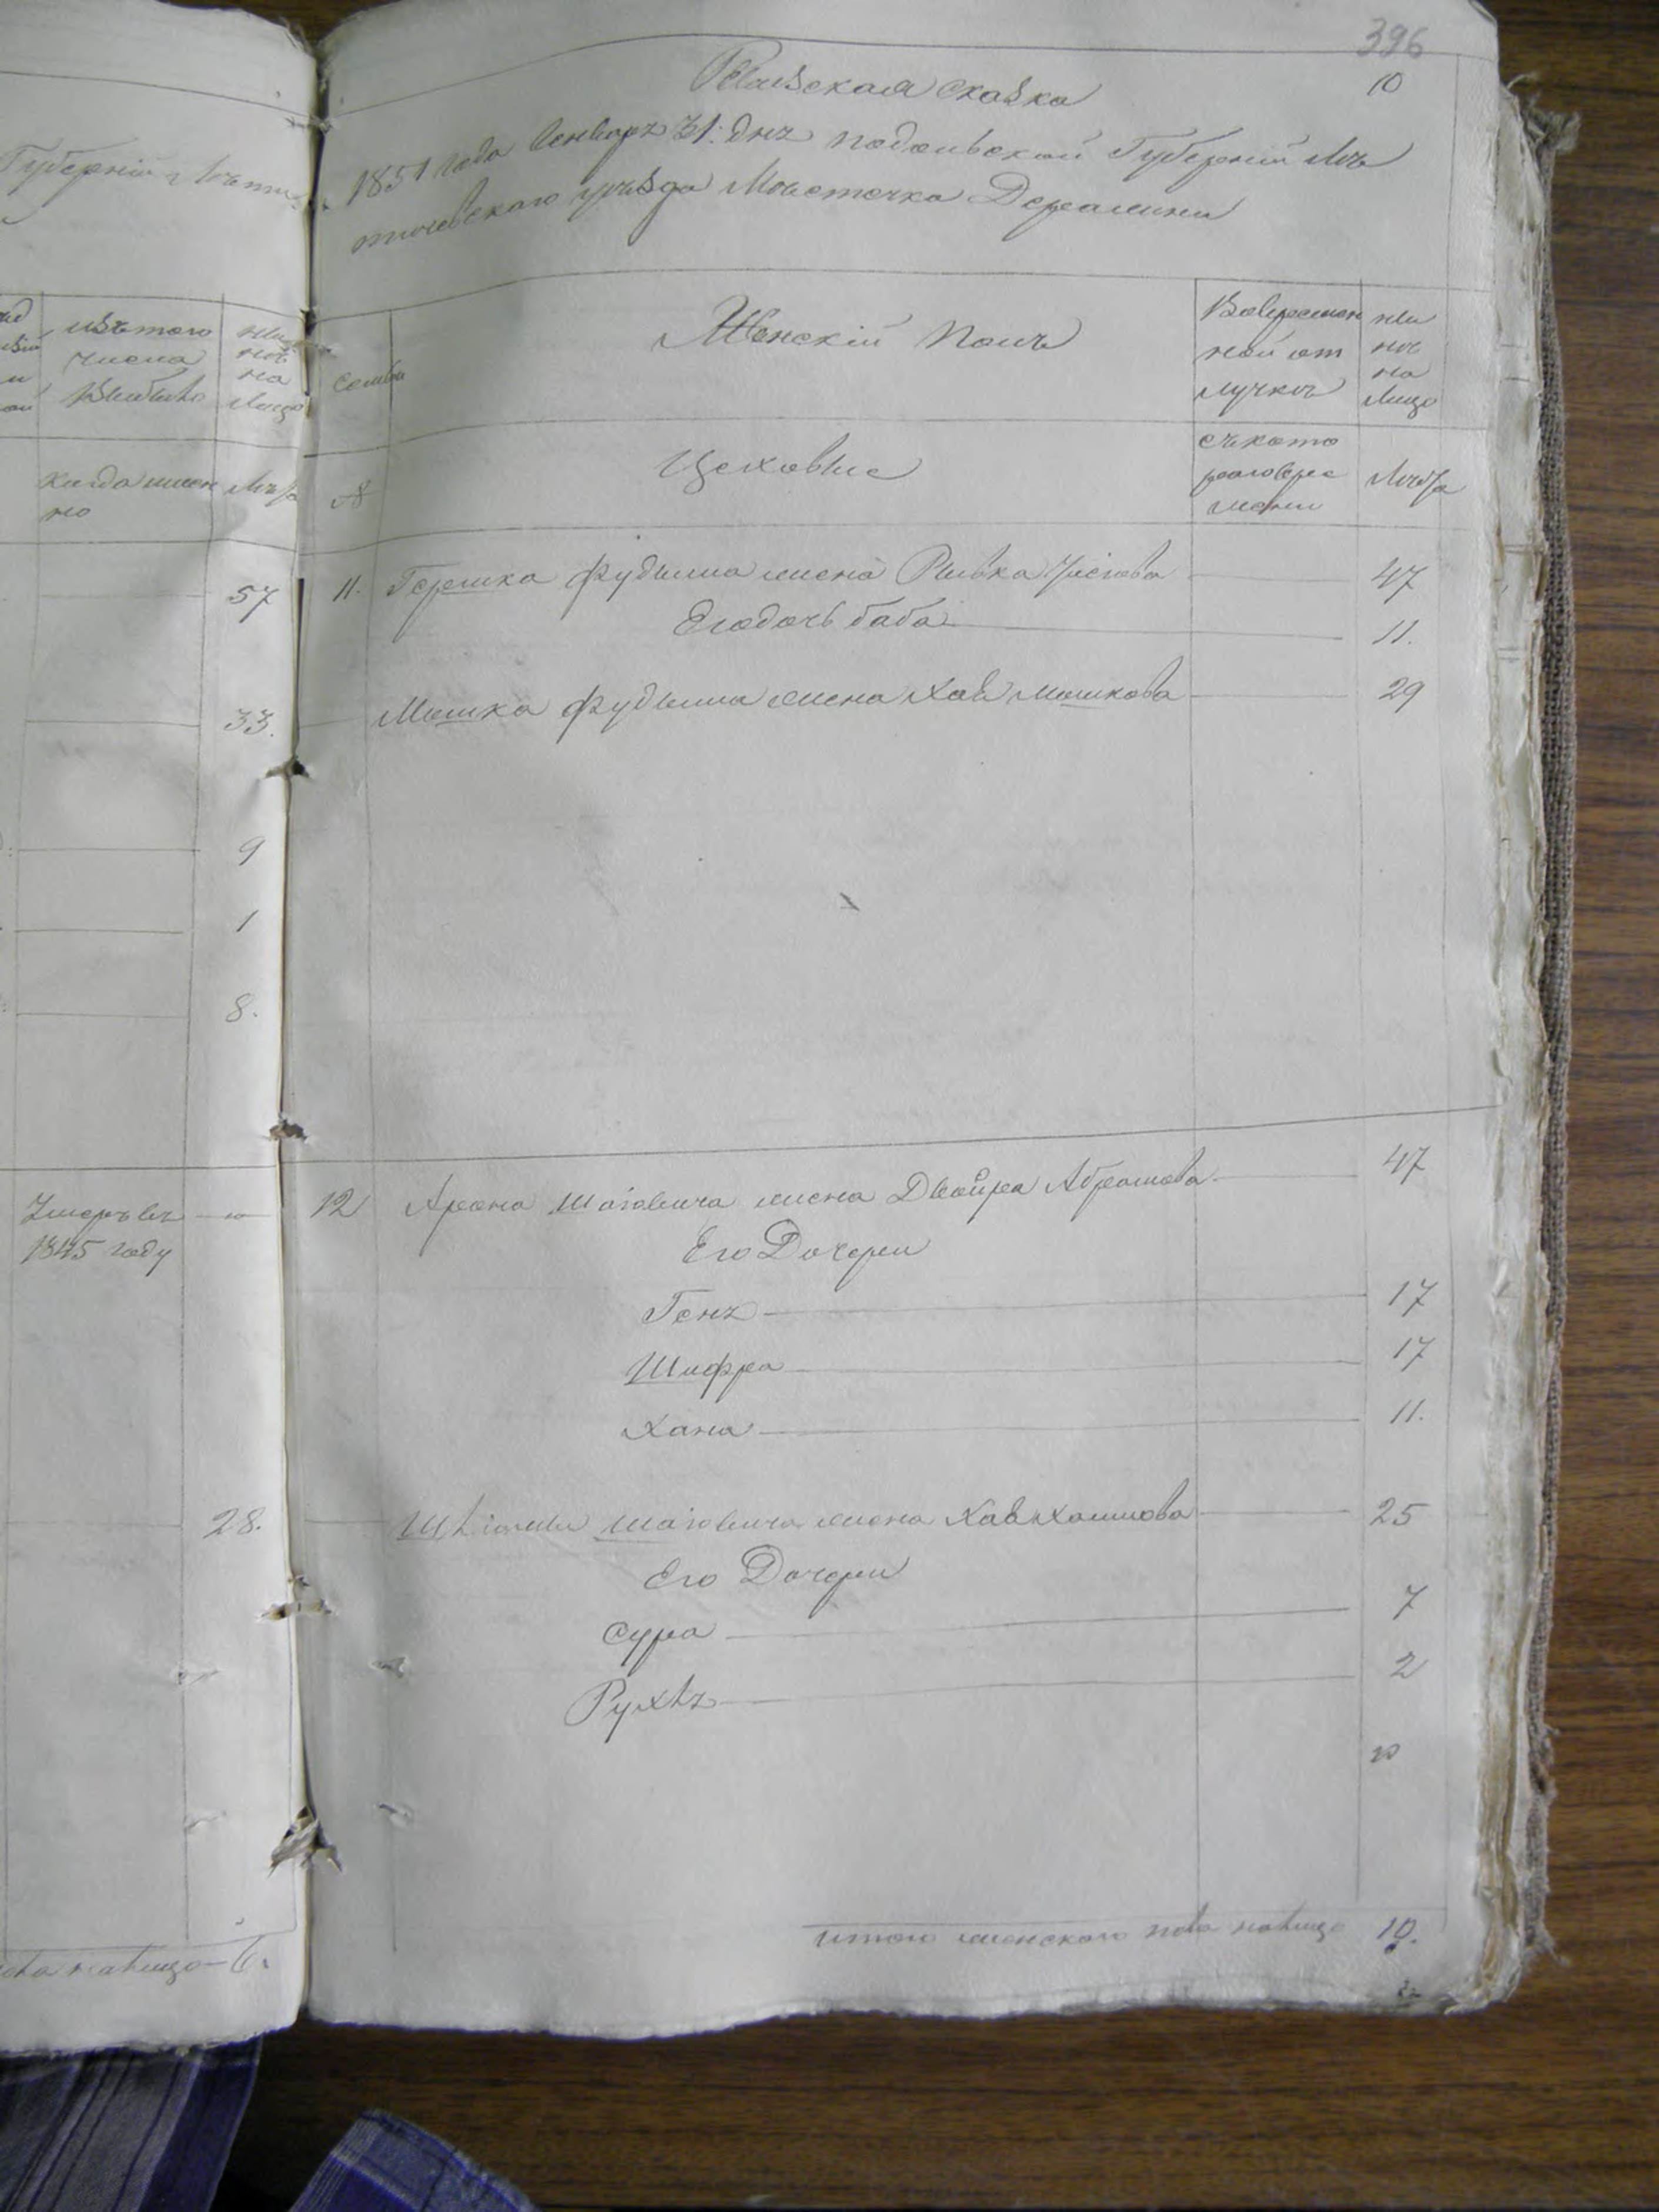 396
10
Ревизская сказка
1851 года Генваря 31. дня Подольской Губернии Лѣ
тичевскаго уѣзда Мѣстечка Деражни
Губерніи Лѣти
изъ того
числа
выбыло
ны
нѣ
на
Лицо
когда имен
но
Лѣта
57
33.
9
1
8.
Умеръ въ
1845 году
28.
налицо 6.
Семьи
Женскій Полъ
Вовремен
ной от
лучкѣ
ны
нѣ
на
Лицо
№
Цеховые
съ кото
раго вре
мени
Лѣта
11. Гершка Фудыма жена Ривка 47
Его дочь баба 11.
Мошка Фудыма жена Хая Мошкова 29
12 Арона жена Двойра Абрамова 47
Его Дочери
Геня 17
Шифра 17
Хана 11.
жена Хая Хаимова 25
Его Дочери
Сура 7
Рухля 2
10
Итого женского пола налицо 10.